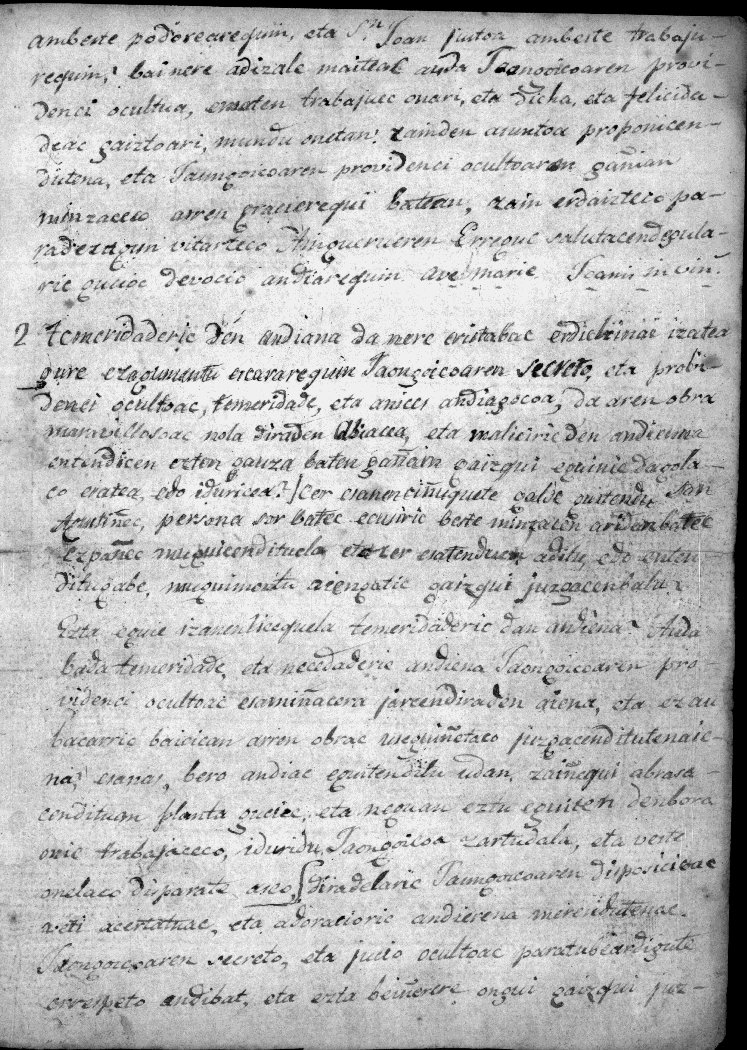 amberte podorearequin, eta Sn. Joan justoa amberte trabaju-
requin, bai nere adizale maiteac auda Jaongoicoaren provi-
denci ocultua, ematen trabajuec onari, eta dicha, eta felicida-
deac gaiztoari, mundu onetan: zainden asuntoa proponicen-
dutena, eta Jaungoicoaren providenci ocultoaren gañian
minzaceco arren gracierequi batean, zain erdaizteco pa-
radezagun vitarteco Ainguerueren Erregue salutacendegula-
ric gucioc devocio andiarequin ave marie
2 temeridaderic den andiana da nere cristabac erdichinai izatea
gure ezagumentu escararequin Jaongoicoaren secreto, eta probi-
denci ocultoac, temeridade, eta anices andiagocoa, da aren obra
maravillosoac nola diraden abiacea, eta maliciric den andiena
entendicen ezten gauza baten gañain gaizqui eguinic dagola-
co esatea, edo iduricea? cer esanenciñuquete galde eutendu San
Agustiñec, persona sor batec ecusiric beste minzacen ari dan batec
ezpañec muguicendituela eta cer esatenduen aditu, edo enten-
ditugabe, muguimentu aiengatic gaizqui juzgacenbalu?
Ezta eguie izanenlicequela temeridaderic dan andiena? Auda
bada temeridade, eta necedaderic andiena Jaongoicoaren pro-
videnci ocultoac esamiñacera jarcendiraden aiena, eta ez au
bacarric baicican arren obrac juzgacenditutenaie-
na, esanas, bero andiac eguitenditu udan, abrasa-
conditüan planta guciec, eta neguan eztu eguiten denbora
onic trabajaceco, iduridu Jaongoicoa zartudala, eta veste
onelaco disparate asco, diradelaric Jaungoicoaren disposicioac
veti acertatuac, eta adoracioric andierena merecidutenac.
Jaongoicoaren secreto, eta juicio ocultoac paratubeardigute
errespeto andibat, eta ezta beiñerere ongui gaizqui juz-